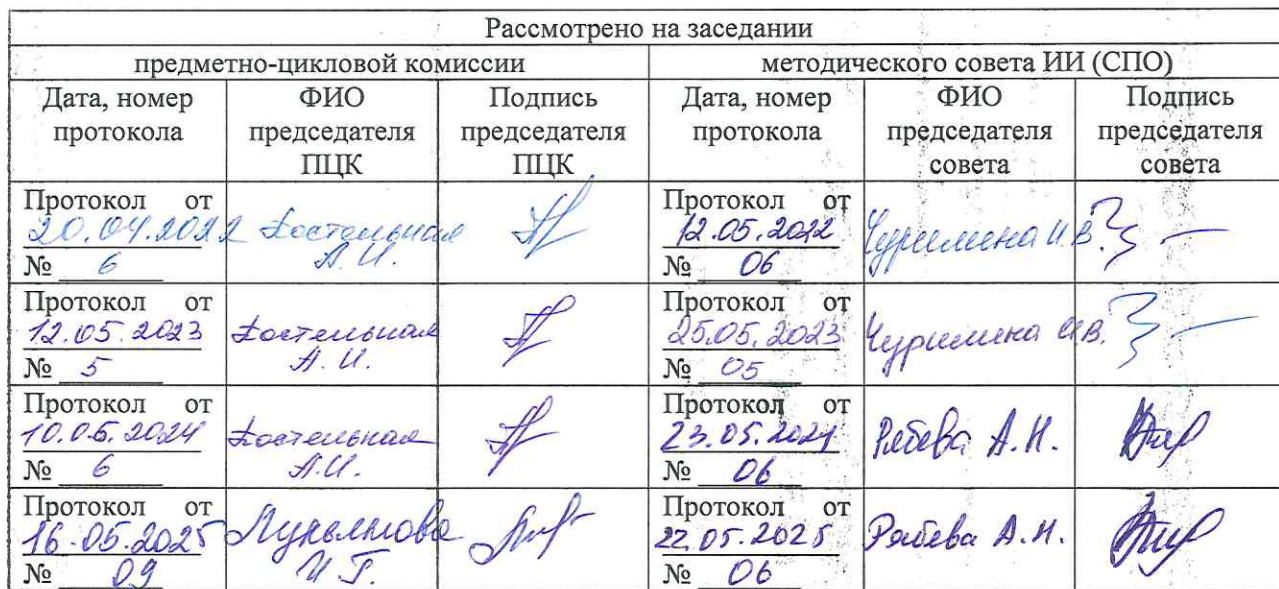 Рассмотрено на заседании
предметно-цикловой комиссии
методического совета ИИ (СПО)
Дата, номер протокола
ФИО председателя ПЦК
Подпись председателя ПЦК
Дата, номер протокола
ФИО председателя совета
Подпись председателя совета
Протокол от
20.04.2022
№ 6
А.И.
Протокол от
12.05.2022
№ 06
Чурилина И.В.
Протокол от
12.05.2023
№ 5
А.И.
Протокол от
25.05.2023
№ 05
Чурилина И.В.
Протокол от
10.05.2024
№ 6
А.И.
Протокол от
23.05.2024
№ 06
А.Н.
Протокол от
16.05.2025
№ 09
И.Г.
Протокол от
22.05.2025
№ 06
А.Н.